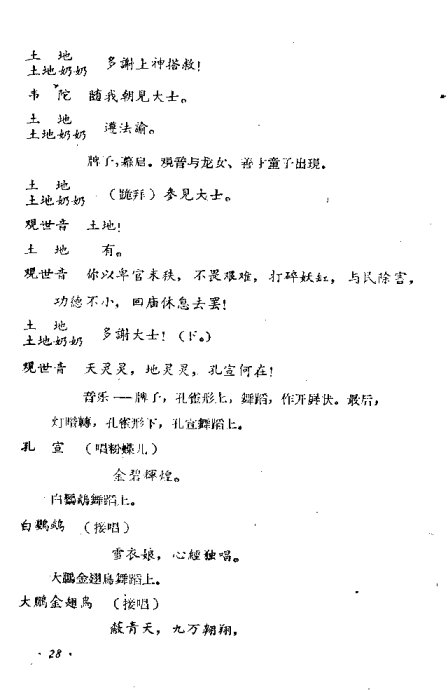 土　地
土地奶奶　多謝上神搭救！
韦　陀　随我朝見大士。
土　地
土地奶奶　遵法諭。
牌子，幕启。观音与龙女、善才童子出現。
土　地
土地奶奶　（跪拜）参見大士。
观世音　土地！
土　地　有。
观世音　你以卑官末秩，不畏艰难，打碎妖缸，与民除害，
功德不小，回庙休息去罢！
土　地
土地奶奶　多謝大士！（下。）
观世音　天灵灵，地灵灵，孔宣何在！
音乐——牌子，孔雀形上，舞蹈，作开屏状。最后，
灯暗轉，孔雀形下，孔宣舞蹈上。
孔　宣　（唱粉蝶儿）
金碧輝煌。
白鸚鵡舞蹈上。
白鸚鵡　（接唱）
雪衣娘，心經独唱。
大鵬金翅鳥舞蹈上。
大鵬金翅鳥　（接唱）
蔽青天，九万翱翔，
· 28 ·